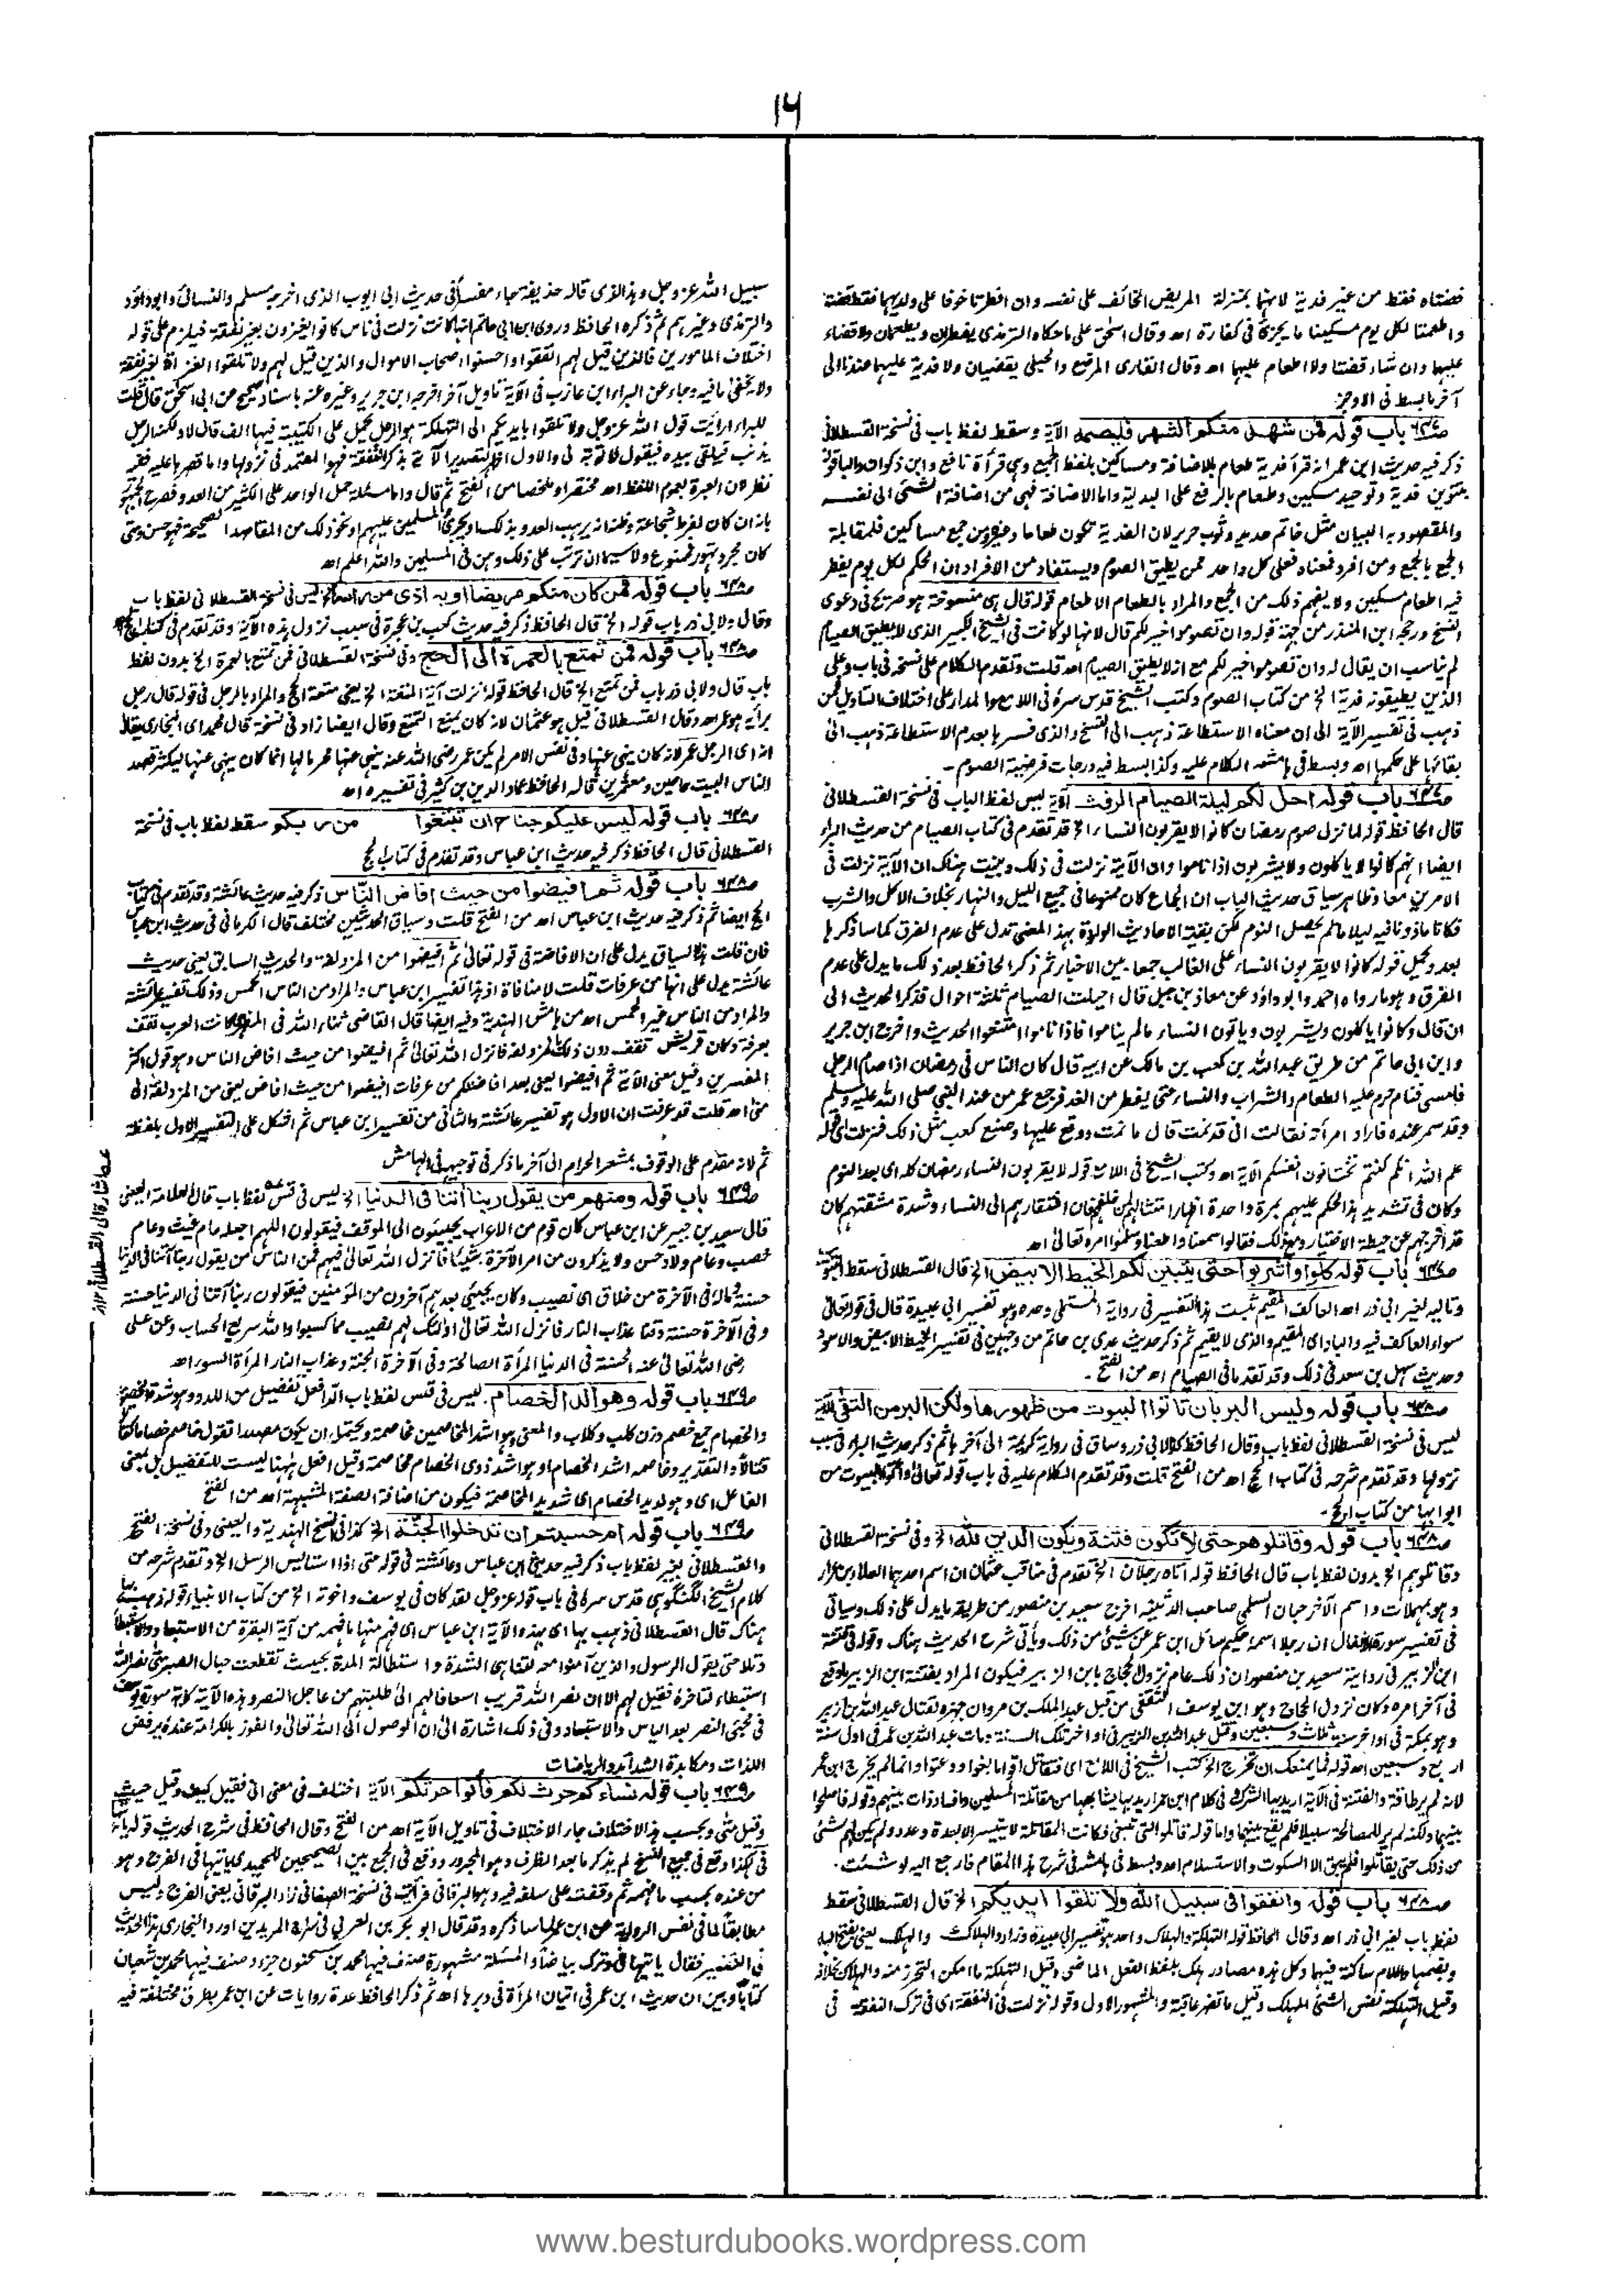 ١٦
قضتاه فقط من غير فدية لانها بمنزلة المريض الخائف على نفسه وان افطرتا خوفا على ولديهما فقط قضتا
واطعمتا لكل يوم مسكينا ما يجزئ فى كفارة اه وقال اسحق على ما حكاه الترمذى يفطران ويطعمان ولا قضاء
عليهما وان شاءتا قضتا ولا اطعام عليهما اه وقال القارى المرضع والحبلى يقضيان ولا فدية عليهما عندنا الى
آخر ما بسط فى الاوجز
ص٦٤٧ باب قوله فمن شهد منكم الشهر فليصمه الآية وسقط لفظ باب فى نسخة القسطلانى
ذكر فيه حديث ابن عمر انه قرأ فدية طعام بالاضافة ومساكين بلفظ الجمع وهى قرأة نافع وابن ذكوان والباقون
بتنوين فدية وتوحيد مسكين وطعام بالرفع على البدلية واما الاضافة فهى من اضافة الشئ الى نفسه
والمقصود به البيان مثل خاتم حديد وثوب حرير لان الفدية تكون طعاما وغيره ومن جمع مساكين فلمقابلة
الجمع بالجمع ومن افرد فمعناه فعلى كل واحد ممن يطيق الصوم ويستفاد من الافراد ان الحكم لكل يوم يفطر
فيه اطعام مسكين ولا يفهم ذلك من الجمع والمراد بالطعام الاطعام قوله قال هى منسوخة هو صريح فى دعوى
النسخ ورجحه ابن المنذر من جهة قوله وان تصوموا خير لكم قال لانها لو كانت فى الشيخ الكبير الذى لا يطيق الصيام
لم يناسب ان يقال له وان تصوموا خير لكم مع انه لا يطيق الصيام اه قلت وتقدم الكلام على نسخه فى باب وعلى
الذين يطيقونه فدية الخ من كتاب الصوم وكتب الشيخ قدس سره فى اللامع والمدار على اختلاف التاويل فمن
ذهب فى تفسير الآية الى ان معناه الاستطاعة ذهب الى النسخ والذى فسرها بعدم الاستطاعة ذهب الى
بقائها على حكمها اه وبسط فى هامشه الكلام عليه وكذا بسط فيه درجات فرضية الصوم۔
ص٦٤٧ باب قوله احل لكم ليلة الصيام الرفث الآية ليس لفظ الباب فى نسخة القسطلانى
قال الحافظ قوله لما نزل صوم رمضان كانوا لا يقربون النساء الخ قد تقدم فى كتاب الصيام من حديث البراء
ايضا انهم كانوا لا ياكلون ولا يشربون اذا ناموا وان الآية نزلت فى ذلك وبينت هناك ان الآية نزلت فى
الامرين معا وظاهر سياق حديث الباب ان الجماع كان ممنوعا فى جميع الليل والنهار بخلاف الاكل والشرب
فكانا ماذونا فيه ليلا ما لم يحصل النوم لكن بقية الاحاديث الواردة بهذا المعنى تدل على عدم الفرق كما ساذكرها
بعد ويحمل قوله كانوا لا يقربون النساء على الغالب جمعا بين الاخبار ثم ذكر الحافظ بعد ذلك ما يدل على عدم
الفرق وهو ما رواه احمد وابو داود عن معاذ بن جبل قال احيلت الصيام ثلثة احوال فذكر الحديث الى
ان قال وكانوا ياكلون ويشربون وياتون النساء ما لم يناموا فاذا ناموا امتنعوا الحديث واخرج ابن جرير
وابن ابى حاتم من طريق عبد الله بن كعب بن مالك عن ابيه قال كان الناس فى رمضان اذا صام الرجل
فامسى فنام حرم عليه الطعام والشراب والنساء حتى يفطر من الغد فرجع عمر من عند النبى صلى الله عليه وسلم
وقد سمر عنده فاراد امرأته فقالت انى قد نمت قال ما نمت ووقع عليها وصنع كعب مثل ذلك فنزلت اى قوله
علم الله انكم كنتم تختانون انفسكم الآية اه وكتب الشيخ فى اللامع قوله لا يقربون النساء رمضان كله اى بعد النوم
وكان فى تشديد هذا الحكم عليهم بمرة واحدة اظهار امتثالهم فان افتقارهم الى النساء وشدة مشقتهم كان
قد اخرجهم عن حيطة الاختيار ومع ذلك فقالوا سمعنا واطعنا وسلموا امره تعالى اه
ص٦٤٧ باب قوله كلوا واشربوا حتى يتبين لكم الخيط الابيض الخ قال القسطلانى سقط التبويب
وتاليه لغير ابى ذر اه العاكف المقيم ثبت هذا التفسير فى رواية المستملى وحده وهو تفسير ابى عبيدة قال فى قوله تعالى
سواء العاكف فيه والباد اى المقيم والذى لا يقيم ثم ذكر حديث عدى بن حاتم من وجهين فى تفسير الخيط الابيض والاسود
وحديث سهل بن سعد فى ذلك وقد تقدما فى الصيام اه من الفتح۔
ص٦٤٨ باب قوله وليس البر بان تاتوا البيوت من ظهورها ولكن البر من اتقى الآية
ليس فى نسخة القسطلانى لفظ باب وقال الحافظ كذا لابى ذر وساق فى رواية كريمة الى آخرها ثم ذكر حديث البراء فى سبب
نزولها وقد تقدم شرحه فى كتاب الحج اه من الفتح قلت وقد تقدم الكلام عليه فى باب قوله تعالى وأتوا البيوت من
ابوابها من كتاب الحج۔
ص٦٤٨ باب قوله وقاتلوهم حتى لا تكون فتنة ويكون الدين لله الخ وفى نسخة القسطلانى
وقاتلوهم الخ بدون لفظ باب قال الحافظ قوله اتاه رجلان الخ تقدم فى مناقب عثمان ان اسم احدهما العلاء بن عرار
وهو بمهملات واسم الآخر حبان السلمى صاحب الدثينة اخرج سعيد بن منصور من طريقه ما يدل على ذلك وسياتى
فى تفسير سورة الانفال ان رجلا اسمه حكيم سأل ابن عمر عن شئ من ذلك ويأتى شرح الحديث هناك وقوله فى فتنة
ابن الزبير فى رواية سعيد بن منصور ان ذلك عام نزول الحجاج بابن الزبير فيكون المراد بفتنة ابن الزبير ما وقع
فى آخر امره وكان نزول الحجاج وهو ابن يوسف الثقفى من قبل عبد الملك بن مروان جهزه لقتال عبد الله بن الزبير
وهو بمكة فى اواخر سنة ثلاث وسبعين وقتل عبد الله بن الزبير فى اواخر تلك السنة ومات عبد الله بن عمر فى اول سنة
اربع وسبعين اه قوله فما يمنعك ان تخرج الخ كتب الشيخ فى اللامع اى فتقاتل اقواما بغوا وعتوا وانما لم يخرج ابن عمر
لانه لم ير طاقة والفتنة فى الآية اريد بها الشرك وفى كلام ابن عمر اريد بها ينشأ بها من مقاتلة المسلمين وافساد ذات بينهم وقوله فاصلحوا
بينهما ولكنه لم ير للمصالحة سبيلا فلم يقع بينهما واما قوله فقاتلوا التى تبغى فكانت المقاتلة لا يتيسر الا بعدة وعدد ولم يكن لهم شئ
من ذلك حتى يقاتلوا فلم يبق الا السكوت والاستسلام اه وبسط فى هامشه فى شرح هذا المقام فارجع اليه لو شئت۔
ص٦٤٨ باب قوله وانفقوا فى سبيل الله ولا تلقوا ايديكم الخ قال القسطلانى سقط
لفظ باب لغير ابى ذر اه وقال الحافظ قوله التهلكة والهلاك واحد هو تفسير ابى عبيدة وزاد والهلاك والهلك يعنى بفتح الهاء
وبضمها واللام ساكنة فيهما وكل هذه مصادر هلك بلفظ الفعل الماضى وقيل التهلكة ما امكن التحرز منه والهلاك بخلافه
وقيل التهلكة نفس الشئ المهلك وقيل ما تضر عاقبته والمشهور الاول وقوله نزلت فى النفقة اى فى ترك النفقة فى
سبيل الله عز وجل وهذا الذى قاله حذيفة جاء مفسرا فى حديث ابى ايوب الذى اخرجه مسلم والنسائى وابو داود
والترمذى وغيرهم ثم ذكره الحافظ وروى ابن ابى حاتم انها كانت نزلت فى ناس كانوا يغزون بغير نفقة فيلزم على قوله
اختلاف المامورين فالذين قيل لهم انفقوا واحسنوا اصحاب الاموال والذين قيل لهم ولا تلقوا الغزاة بغير نفقة
ولا يخفى ما فيه وجاء عن البراء ابن عازب فى الآية تاويل آخر اخرجه ابن جرير وغيره عنه باسناد صحيح عن ابى اسحق قال قلت
للبراء ارأيت قول الله عز وجل ولا تلقوا بايديكم الى التهلكة هو الرجل يحمل على الكتيبة فيها الف قال لا ولكنه الرجل
يذنب فيلقى بيده فيقول لا توبة لى والاول اظهر لتصدير الآية بذكر النفقة فهو المعتمد فى نزولها واما قصرها عليه ففيه
نظر لان العبرة بعموم اللفظ اه مختصرا وملخصا من الفتح ثم قال واما مسئلة حمل الواحد على الكثير من العدو فصرح الجمهور
بانه ان كان لفرط شجاعته وظنه انه يرهب العدو بذلك او يجرئ المسلمين عليهم او نحو ذلك من المقاصد الصحيحة فهو حسن ومتى
كان مجرد تهور فممنوع ولا سيما ان ترتب على ذلك وهن فى المسلمين والله اعلم اه
ص٦٤٨ باب قوله فمن كان منكم مريضا او به اذى من راسه الخ ليس فى نسخة القسطلانى لفظ باب
وقال ولابى ذر باب قوله الخ قال الحافظ ذكر فيه حديث كعب بن عجرة فى سبب نزول هذه الآية وقد تقدم فى كتاب الحج
ص٦٤٨ باب قوله فمن تمتع بالعمرة الى الحج وفى نسخة القسطلانى فمن تمتع بالعمرة الخ بدون لفظ
باب قال ولابى ذر باب فمن تمتع الخ قال الحافظ قوله نزلت آية المتعة الخ يعنى متعة الحج والمراد بالرجل فى قوله قال رجل
برأيه هو عمر اه وقال القسطلانى قيل هو عثمان لانه كان يمنع التمتع وقال ايضا زاد فى نسخة قال محمد اى البخارى يقال
انه اى الرجل عمر لانه كان ينهى عنها وفى نفس الامر لم يكن عمر رضى الله عنه ينهى عنها محرما لها انما كان ينهى عنها ليكثر قصد
الناس البيت حاجين ومعتمرين قاله الحافظ عماد الدين بن كثير فى تفسيره اه
ص٦٤٨ باب قوله ليس عليكم جناح ان تبتغوا من ربكم سقط لفظ باب فى نسخة
القسطلانى قال الحافظ ذكر فيه حديث ابن عباس وقد تقدم فى كتاب الحج
ص٦٤٨ باب قوله ثم افيضوا من حيث افاض الناس ذكر فيه حديث عائشة وقد تقدم فى كتاب
الحج ايضا ثم ذكر فيه حديث ابن عباس اه من الفتح قلت وسياق الحديثين مختلف قال الكرمانى فى حديث ابن عباس
فان قلت هذا السياق يدل على ان الافاضة فى قوله تعالى ثم افيضوا من المزدلفة والحديث السابق يعنى حديث
عائشة يدل على انها من عرفات قلت لا منافاة اذ هذا تفسير ابن عباس والمراد من الناس الحمس وذلك تفسير عائشة
والمراد من الناس غير الحمس اه من هامش الهندية وفيه ايضا قال القاضى ثناء الله فى المظهرى كانت العرب تقف
بعرفة وكان قريش تقف دون ذلك بالمزدلفة فانزل الله تعالى ثم افيضوا من حيث افاض الناس وهو قول اكثر
المفسرين وقيل معنى الآية ثم افيضوا يعنى بعد افاضتكم من عرفات افيضوا من حيث افاض يعنى من المزدلفة الى
منى اه قلت قد عرفت ان الاول هو تفسير عائشة والثانى من تفسير ابن عباس ثم اشكل على التفسير الاول بلفظة
ثم لانه مقدم على الوقوف بمشعر الحرام الى آخر ما ذكر فى توجيهه فى الهامش
ص٦٤٩ باب قوله ومنهم من يقول ربنا آتنا فى الدنيا الخ ليس فى قس عه لفظ باب قال العلامة العينى
قال سعيد بن جبير عن ابن عباس كان قوم من الاعراب يجيئون الى الموقف فيقولون اللهم اجعله عام غيث وعام
خصب وعام ولاد حسن ولا يذكرون من امر الآخرة شيئا فانزل الله تعالى فيهم فمن الناس من يقول ربنا آتنا فى الدنيا
حسنة وماله فى الآخرة من خلاق اى نصيب وكان يجيئ بعدهم آخرون من المؤمنين فيقولون ربنا آتنا فى الدنيا حسنة
وفى الآخرة حسنة وقنا عذاب النار فانزل الله تعالى اولئك لهم نصيب مما كسبوا والله سريع الحساب وعن على
رضى الله تعالى عنه الحسنة فى الدنيا المرأة الصالحة وفى الآخرة الجنة وعذاب النار المرأة السوء اه
ص٦٤٩ باب قوله وهو الد الخصام. ليس فى قس لفظ باب الد افعل تفضيل من اللدد وهو شدة الخصومة
والخصام جمع خصم وزن كلب وكلاب والمعنى وهو اشد المخاصمين مخاصمة ويحتمل ان يكون مصدرا تقول خاصم خصاما كقاتل
قتالا والتقدير وخاصمه اشد الخصام او هو اشد ذوى الخصام مخاصمة وقيل افعل ههنا ليست للتفضيل بل بمعنى
الفاعل اى وهو لديد الخصام اى شديد المخاصمة فيكون من اضافة الصفة المشبهة اه من الفتح
ص٦٤٩ باب قوله ام حسبتم ان تدخلوا الجنة الخ كذا فى النسخ الهندية والعينى وفى نسخة الفتح
والقسطلانى بغير لفظ باب ذكر فيه حديثى ابن عباس وعائشة فى قوله حتى اذا استيأس الرسل الخ وتقدم شرحه من
كلام الشيخ الگنگوهى قدس سره فى باب قوله عز وجل لقد كان فى يوسف واخوته الخ من كتاب الانبياء قوله ذهب بها
هناك قال القسطلانى ذهب بها اى بهذه الآية ابن عباس اى فهم منها ما فهمه من آية البقرة من الاستبعاد والاستبطاء
وتلا حتى يقول الرسول والذين آمنوا معه لتناهى الشدة واستطالة المدة بحيث تقطعت حبال الصبر متى نصر الله
استبطاء لتاخره فقيل لهم الا ان نصر الله قريب اسعافا لهم الى طلبتهم من عاجل النصر وهذه الآية كآية سورة يوسف
فى مجئ النصر بعد الياس والاستبعاد وفى ذلك اشارة الى ان الوصول الى الله تعالى والفوز بالكرامة عنده برفض
اللذات ومكابدة الشدائد والرياضات
ص٦٤٩ باب قوله نساءكم حرث لكم فأتوا حرثكم الآية اختلف فى معنى انى فقيل كيف وقيل حيث
وقيل متى وبحسب هذا الاختلاف جاء الاختلاف فى تاويل الآية اه من الفتح وقال الحافظ فى شرح الحديث قوله يأتيها
فى هكذا وقع فى جميع النسخ لم يذكر ما بعد الظرف وهو المجرور ووقع فى الجمع بين الصحيحين للحميدى ياتيها فى الفرج وهو
من عنده بحسب ما فهمه ثم وقفت على سلفه فيه وهو البرقانى فرأيت فى نسخة الصغانى زاد البرقانى يعنى الفرج وليس
مطابقا لما فى نفس الرواية عن ابن عمر لما ساذكره وقد قال ابو بكر بن العربى فى سراج المريدين اورد البخارى هذا الحديث
فى التفسير فقال ياتيها فى وترك بياضا والمسئلة مشهورة صنف فيها محمد بن سحنون جزء وصنف فيها محمد بن شعبان
كتابا وبين ان حديث ابن عمر فى اتيان المرأة فى دبرها اه ثم ذكر الحافظ عدة روايات عن ابن عمر بطرق مختلفة فيه
عه اشارة الى القسطلانى ١٢ از
www.besturdubooks.wordpress.com